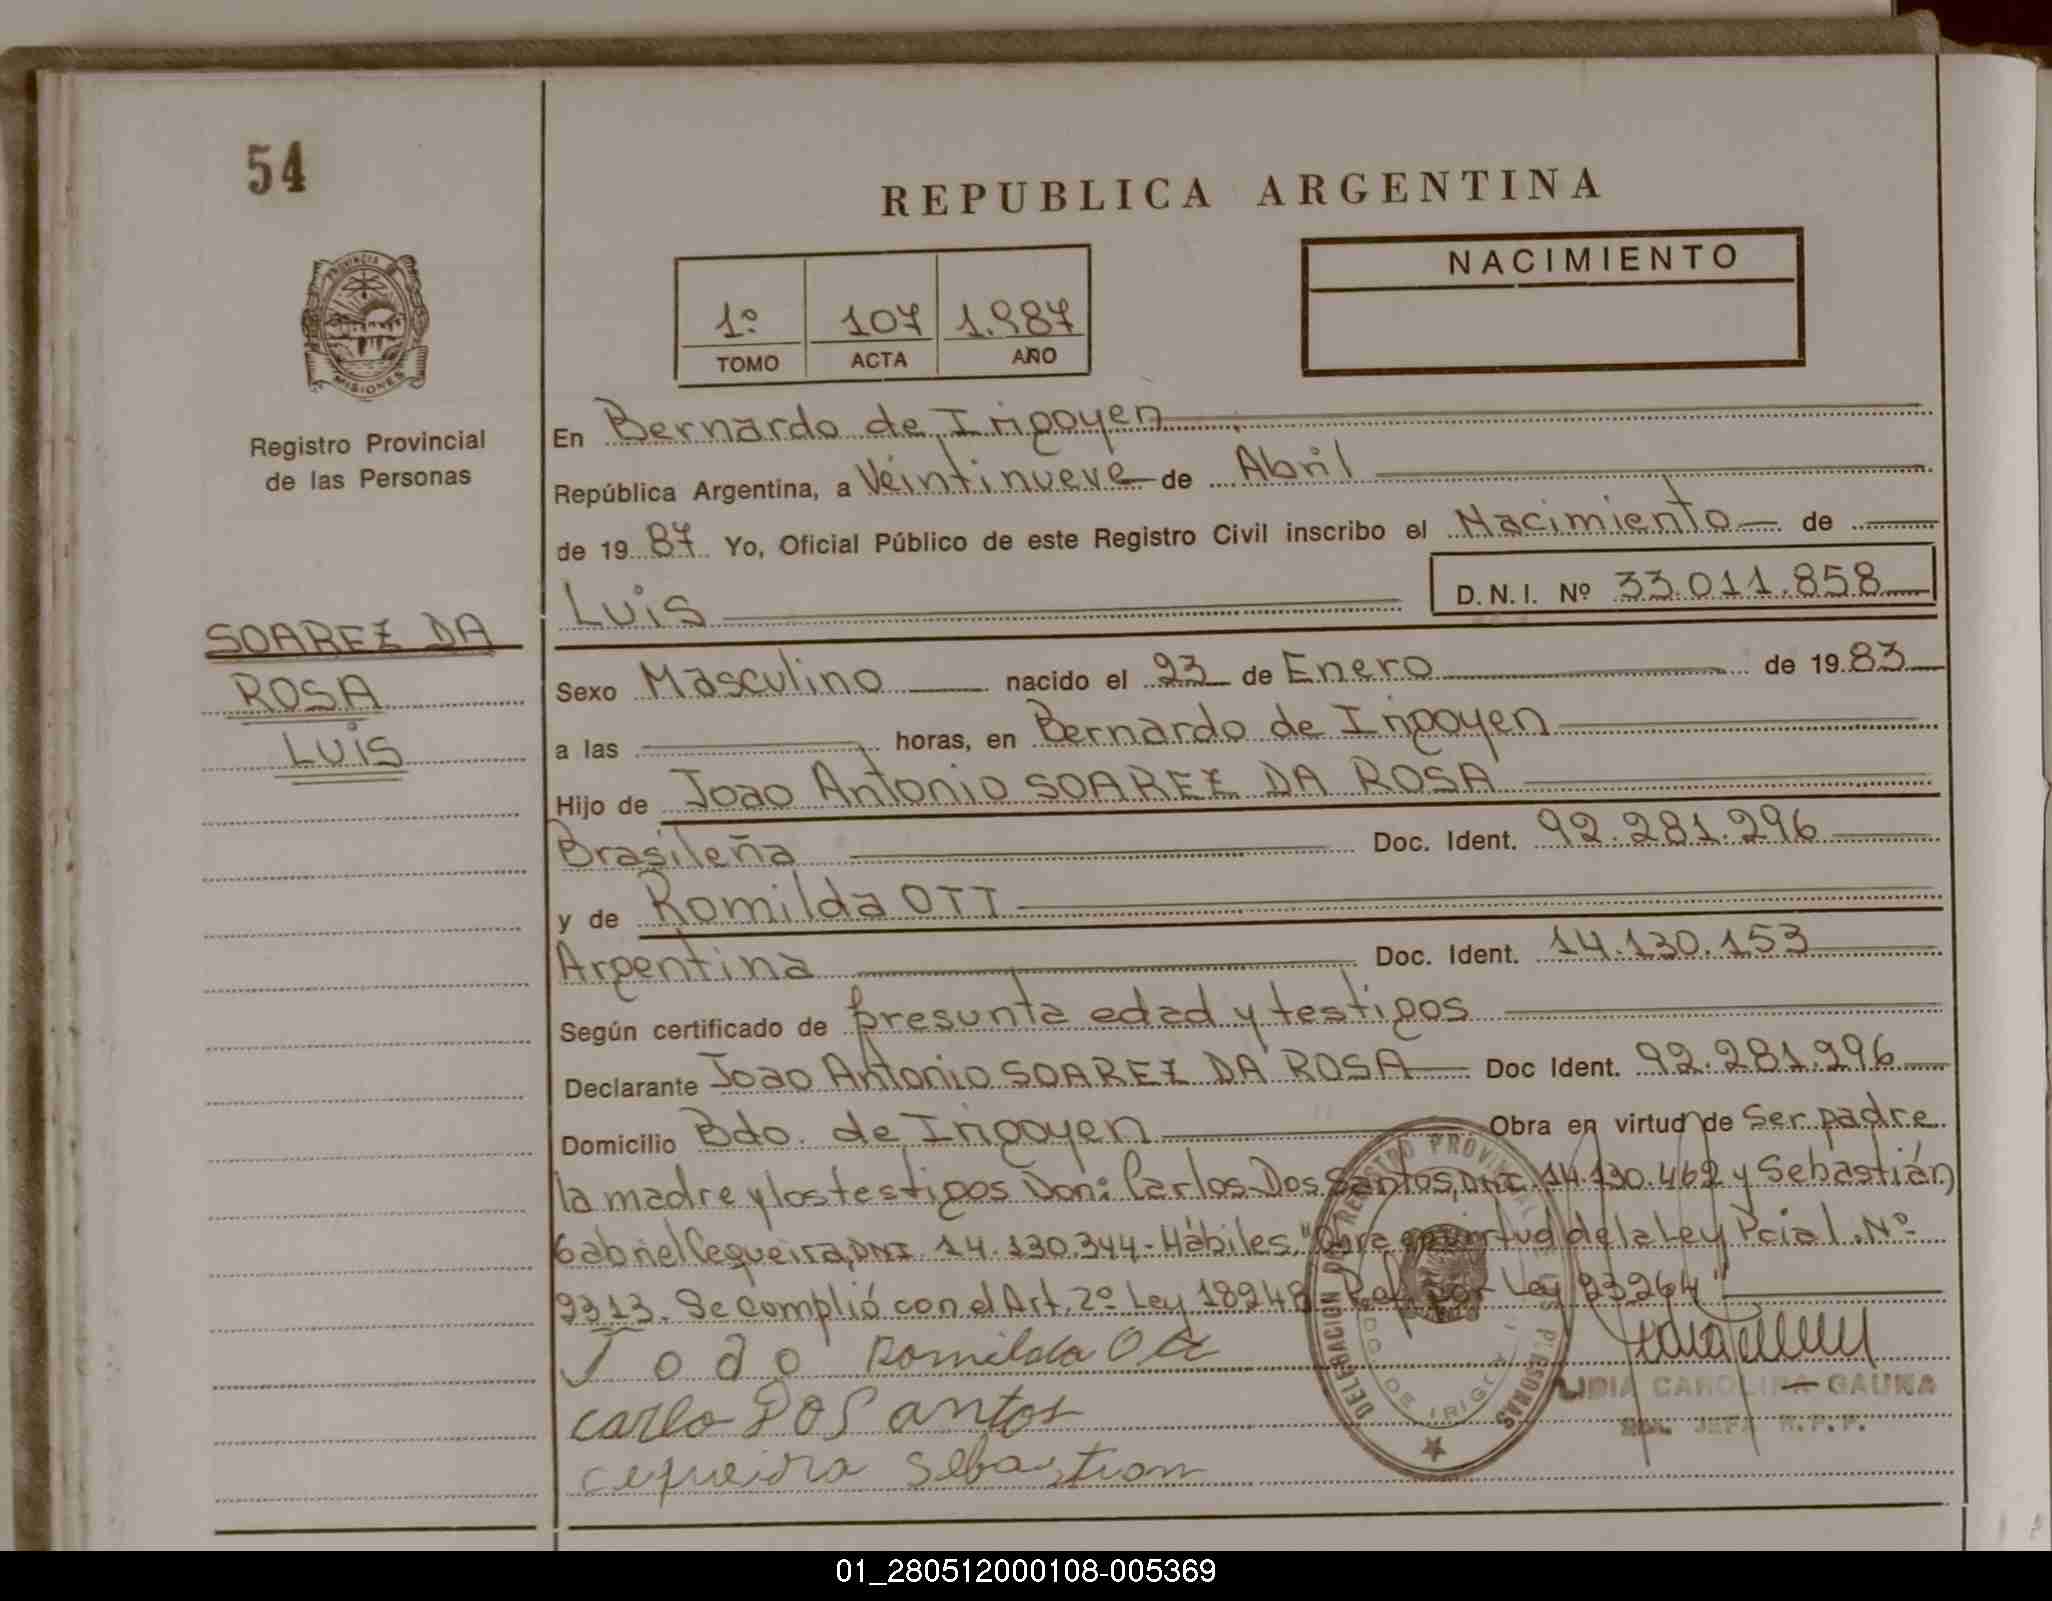 54
REPUBLICA ARGENTINA
NACIMIENTO
1º 107 1.987
TOMO ACTA AÑO
PROVINCIA DE
MISIONES
Registro Provincial
de las Personas
SOAREZ DA
ROSA
LUIS
En Bernardo de Irigoyen
República Argentina, a Veintinueve de Abril
de 19 87 Yo, Oficial Público de este Registro Civil inscribo el Nacimiento de
Luis D.N.I. Nº 33.011.858
Sexo Masculino nacido el 23 de Enero de 19 83
a las horas, en Bernardo de Irigoyen
Hijo de Joao Antonio SOAREZ DA ROSA
Brasileña Doc. Ident. 92.281.296
y de Romilda OTT
Argentina Doc. Ident. 14.130.153
Según certificado de presunta edad y testigos
Declarante Joao Antonio SOAREZ DA ROSA Doc Ident. 92.281.296
Domicilio Bdo. de Irigoyen Obra en virtud de Ser padre
la madre y los testigos Don: Carlos Dos Santos, DNI. 14.130.462 y Sebastián
Gabriel Cequeira, DNI 14.130.344 - Hábiles. "Obra en virtud de la Ley Pcial. Nº
2313. Se complió con el Art. 2º Ley 18248 Ref. por Ley 23264"
Joao Romilda Ott
carlo DOS antos
cequeira Sebastian
DELEGACION DEL REGISTRO PROVINCIAL DE LAS PERSONAS
BDO. DE IRIGOYEN
LIDIA CAROLINA GAUNA
JEFA R.P.P.
01_280512000108-005369